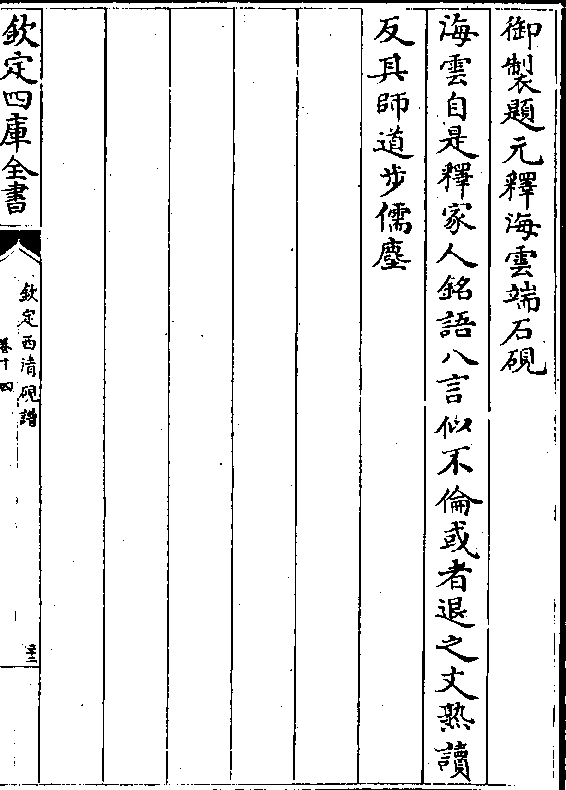 御製題元釋海雲端石硯
海雲自是釋家人銘語八言似不倫或者退之文熟讀
反具師道步儒塵
欽定四庫全書
欽定西清硯譜
卷十四